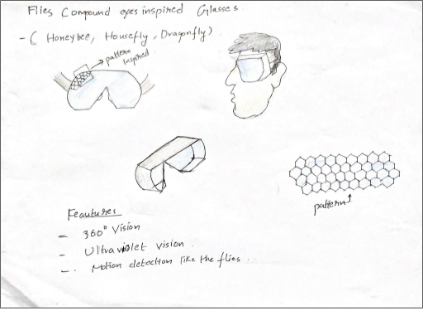 Flies Compound eyes inspired Glasses.
- ( Honeybee, Housefly, Dragonfly)
pattern
inspired
pattern
Features
- 360° Vision
- Ultraviolet Vision.
- Motion detection like the flies.